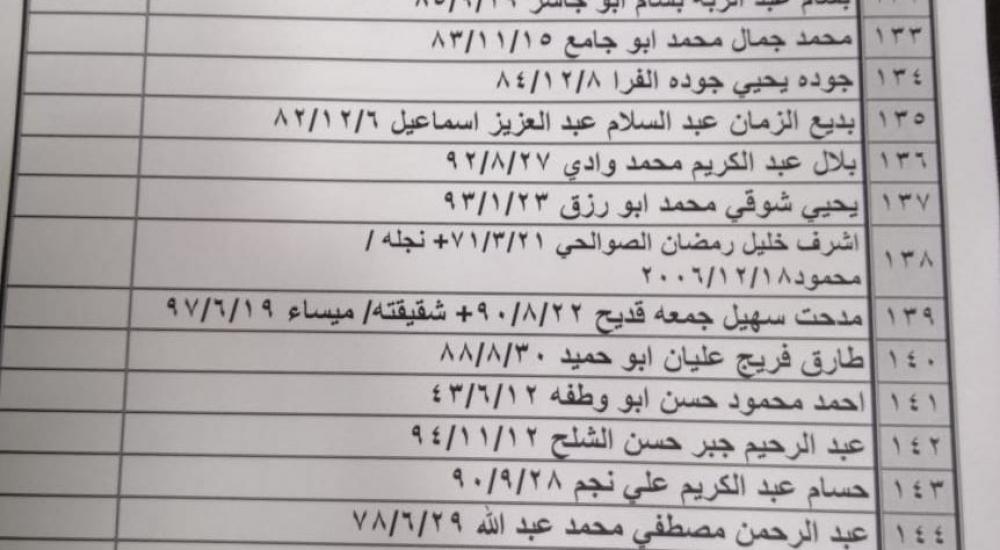 ١٣٣ محمد جمال محمد ابو جامع ٨٣/١١/١٥
١٣٤ جوده يحيي جوده الفرا ٨٤/١٢/٨
١٣٥ بديع الزمان عبد السلام عبد العزيز اسماعيل ٨٢/١٢/٦
١٣٦ بلال عبد الكريم محمد وادي ٩٢/٨/٢٧
١٣٧ يحيي شوقي محمد ابو رزق ٩٣/١/٢٣
١٣٨ اشرف خليل رمضان الصوالحي ٧١/٣/٢١+ نجله /
محمود٢٠٠٦/١٢/١٨
١٣٩ مدحت سهيل جمعه قديح ٩٠/٨/٢٢+ شقيقته/ ميساء ٩٧/٦/١٩
١٤٠ طارق فريج عليان ابو حميد ٨٨/٨/٣٠
١٤١ احمد محمود حسن ابو وطفه ٤٣/٦/١٢
١٤٢ عبد الرحيم جبر حسن الشلح ٩٤/١١/١٢
١٤٣ حسام عبد الكريم علي نجم ٩٠/٩/٢٨
١٤٤ عبد الرحمن مصطفي محمد عبد الله ٧٨/٦/٢٩